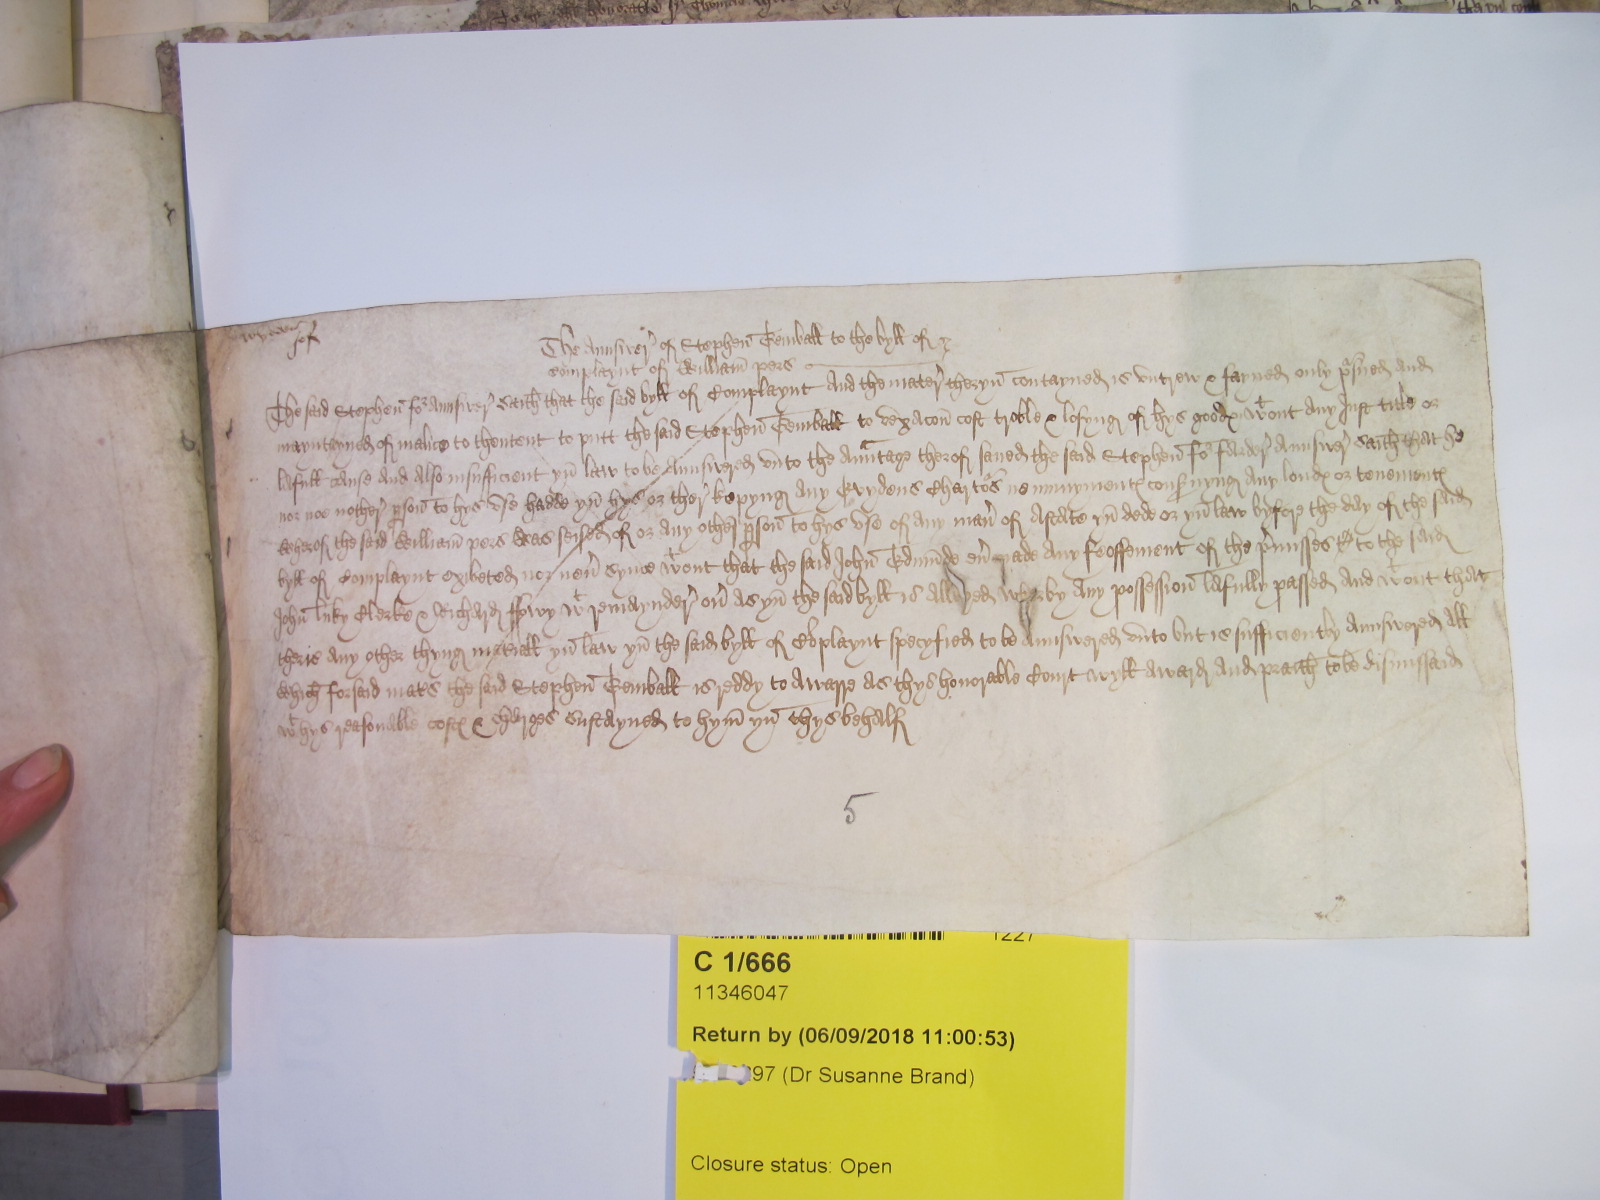 The Answer of Stephen Kemball to the byll of
complaynt of William pers
The said Stephen for Answer saith that the said byll of Complaynt And the mater theryn contayned is untrew & fayned only and
mayntayned of malice to thentent to putt the said Stephen Kemball to vexacon cost troble & losyng of hys goodes wtout Any Just title or
lafull cause And Also insufficient yn law to be Answered unto the Auntage therof saved the said Stephen for farder Answer saith that he
nor noe nother pson to hys use hadde yn hys or ther kepyng Any Evydens Charters ne munyments consernyng Any londes or tenementes
Wherof the said William pers Was seised of or Any other pson to hys use of Any maner of Astate yn dede or yn law byfore the day of the said
byll of Complaynt exibeted nor never synce wtout that the said John Edmunde ever made Any feoffement of the pmisses to the said
John Clerke & Richard wt remaynder over As yn the said byll is Allegyed by Any possession lafully passed And wtout that
ther is Any other thyng materiall yn law yn the said byll of Coplaynt specyfied to be Answered unto but is sufficiently Answered All
Which forsaid maters the said Stephen Kemball is reddy to As thys honorable Court wyll Award And praith to be dismissed
wt hys reasonable costes & charges sustayned to hym yn thys behalf
5
1227
C 1/666
11346047
Return by (06/09/2018 11:00:53)
397 (Dr Susanne Brand)
Closure status: Open